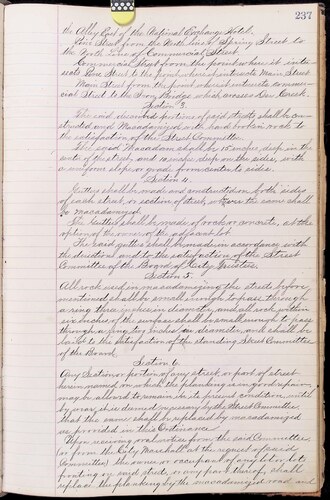 237
the Alley East of the National Exchange Hotel.
Pine Street from the North line of Spring Street to
the North line of Commercial Street
Commercial Street from the point where it inter-
sects Pine Street to the point where it intersects Main Street
Main Street from the point where it intersects commer-
cial Street to the Iron Bridge which crosses Deer Creek.
Section 3.
The said described portions of said streets shall be con-
structed and Macadamized with hard broken rock to
the satisfaction of the Street Committee
The said Macadam shall be inches deep in the
centre of the street, and inches deep on the sides, with
a uniform slope or grade from centre to sides.
Section 4.
Gutters shall be made and constructed on both sides
of each street, or section of street, where the same shall
be macadamized.
The Gutters shall be made of rock or concrete, at the
option of the owner of the adjacent lot.
The said gutters shall be made in accordance with
the directions and to the satisfaction of the Street
Committee of the Board of City Trustees.
Section 5.
All rock used in macadamizing the streets before
mentioned shall be small enough to pass through
a ring three inches in diameter, and all rock within
six inches of the surface shall be small enough to pass
through a ring two inches in diameter, and shall be
laid to the satisfaction of the standing Street Committee
of the Board
Section 6
Any Section or portion of any street or part of street
herein named on which the planking is in good repair
may be allowed to remain in its present condition until
by wear it is deemed necessary by the Street Committee
that the same shall be replaced by macadamized
as provided in this Ordinance.
Upon receiving notice from the said Committee
or from the City Marshall at the request of said
Committee, the owner or occupant of any lot or lots
fronting on said street, or any part thereof, shall
replace the planking by the macadamized road and